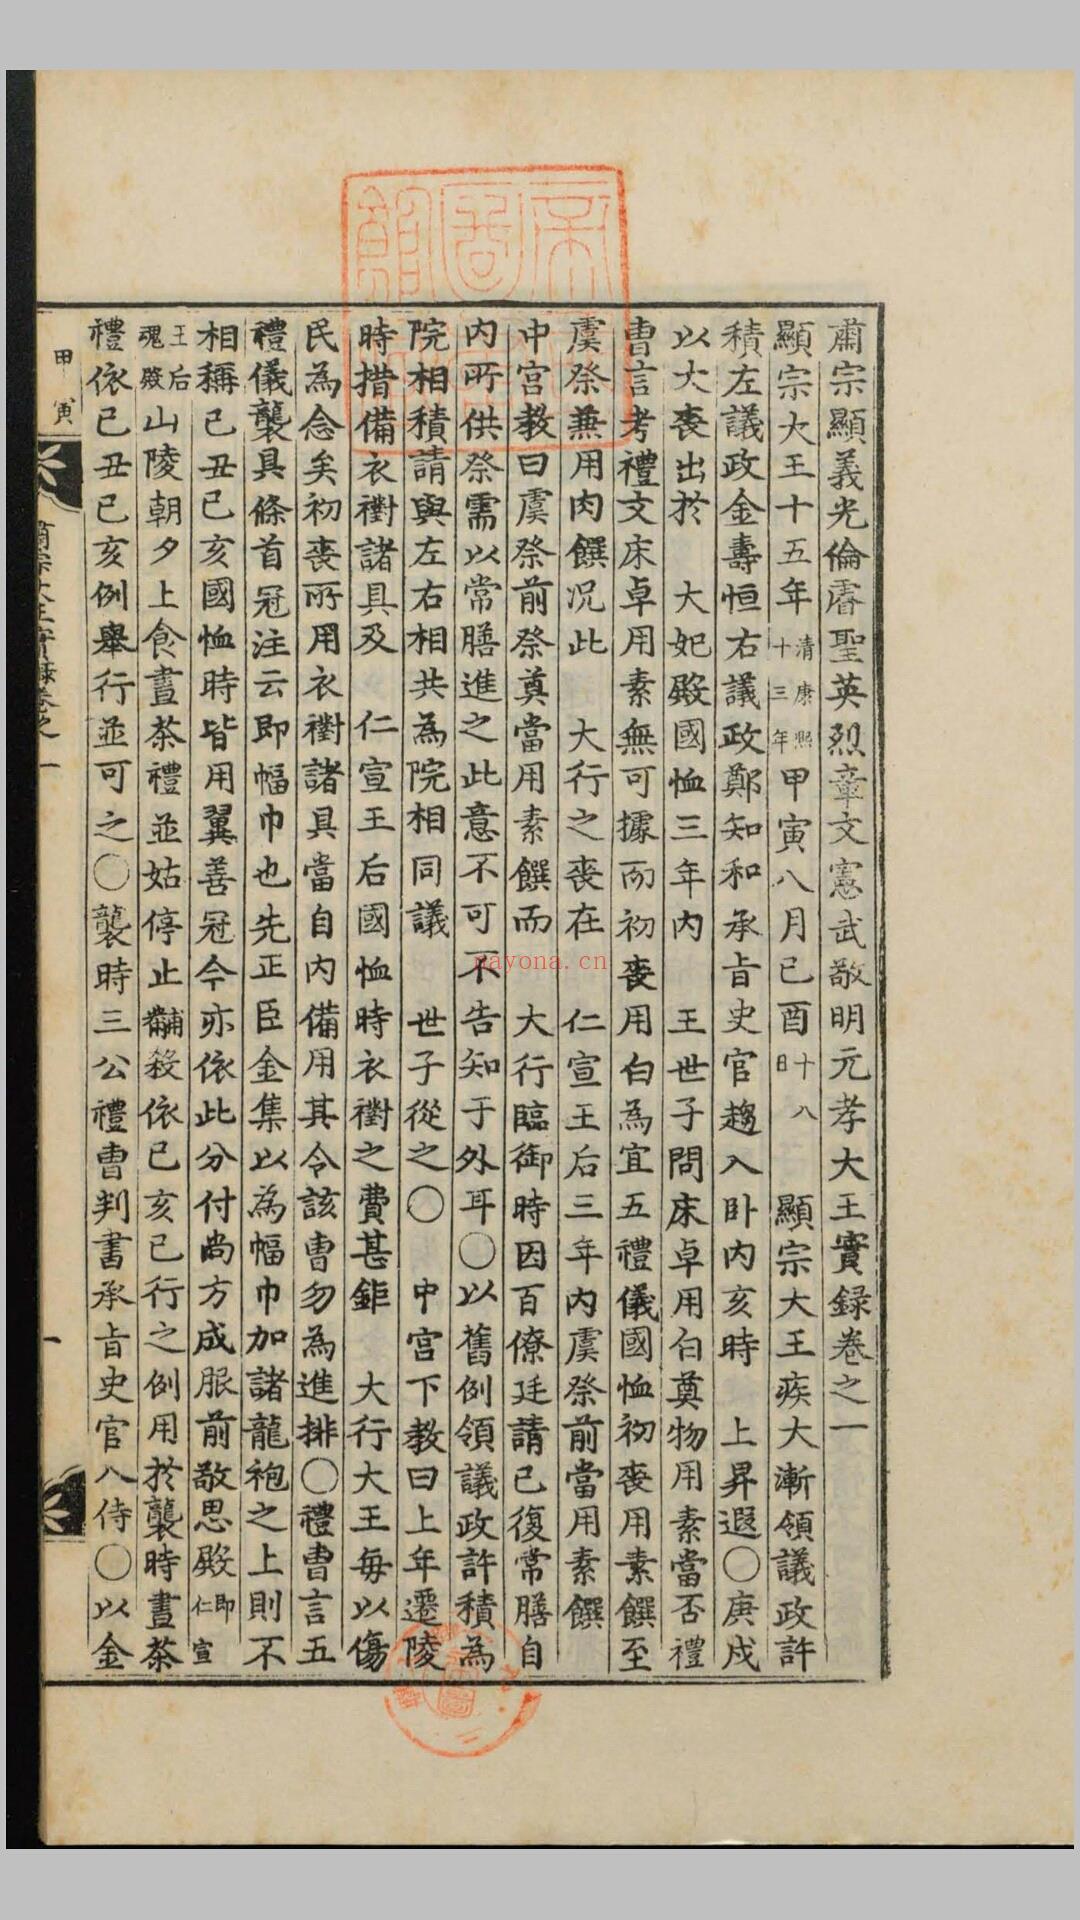 肅宗顯義光倫睿聖英烈章文憲武敬明元孝大王實錄卷之一
顯宗大王十五年清康熙十三年甲寅八月己酉十八日 顯宗大王疾大漸領議政許
積左議政金壽恒右議政鄭知和承旨史官趨入臥內亥時 上昇遐〇庚戌
以大喪出於 大妃殿國恤三年內 王世子問床卓用白奠物用素當否禮
曹言考禮文床卓用素無可據而初喪用白為宜五禮儀國恤初喪用素饌至
虞祭兼用肉饌况此 大行之喪在 仁宣王后三年內虞祭前當用素饌
中宮教曰虞祭前祭奠當用素饌而 大行臨御時因百僚廷請已復常膳自
內所供祭需以常膳進之此意不可不告知于外耳〇以舊例領議政許積為
院相積請與左右相共為院相同議 世子從之〇 中宮下教曰上年遷陵
時措備衣襨諸具及 仁宣王后國恤時衣襨之費甚鉅 大行大王每以傷
民為念矣初喪所用衣襨諸具當自內備用其令該曹勿為進排〇禮曹言五
禮儀襲具條首冠注云即幅巾也先正臣金集以為幅巾加諸龍袍之上則不
相稱己丑己亥國恤時皆用翼善冠今亦依此分付尚方成服前敬思殿即仁宣
王后魂殿山陵朝夕上食晝茶禮並姑停止黼殺依己亥已行之例用於襲時晝茶
禮依己丑己亥例舉行並可之〇襲時三公禮曹判書承旨史官入侍〇以金
甲寅
肅宗大王實錄卷之一
一
nayona.cn